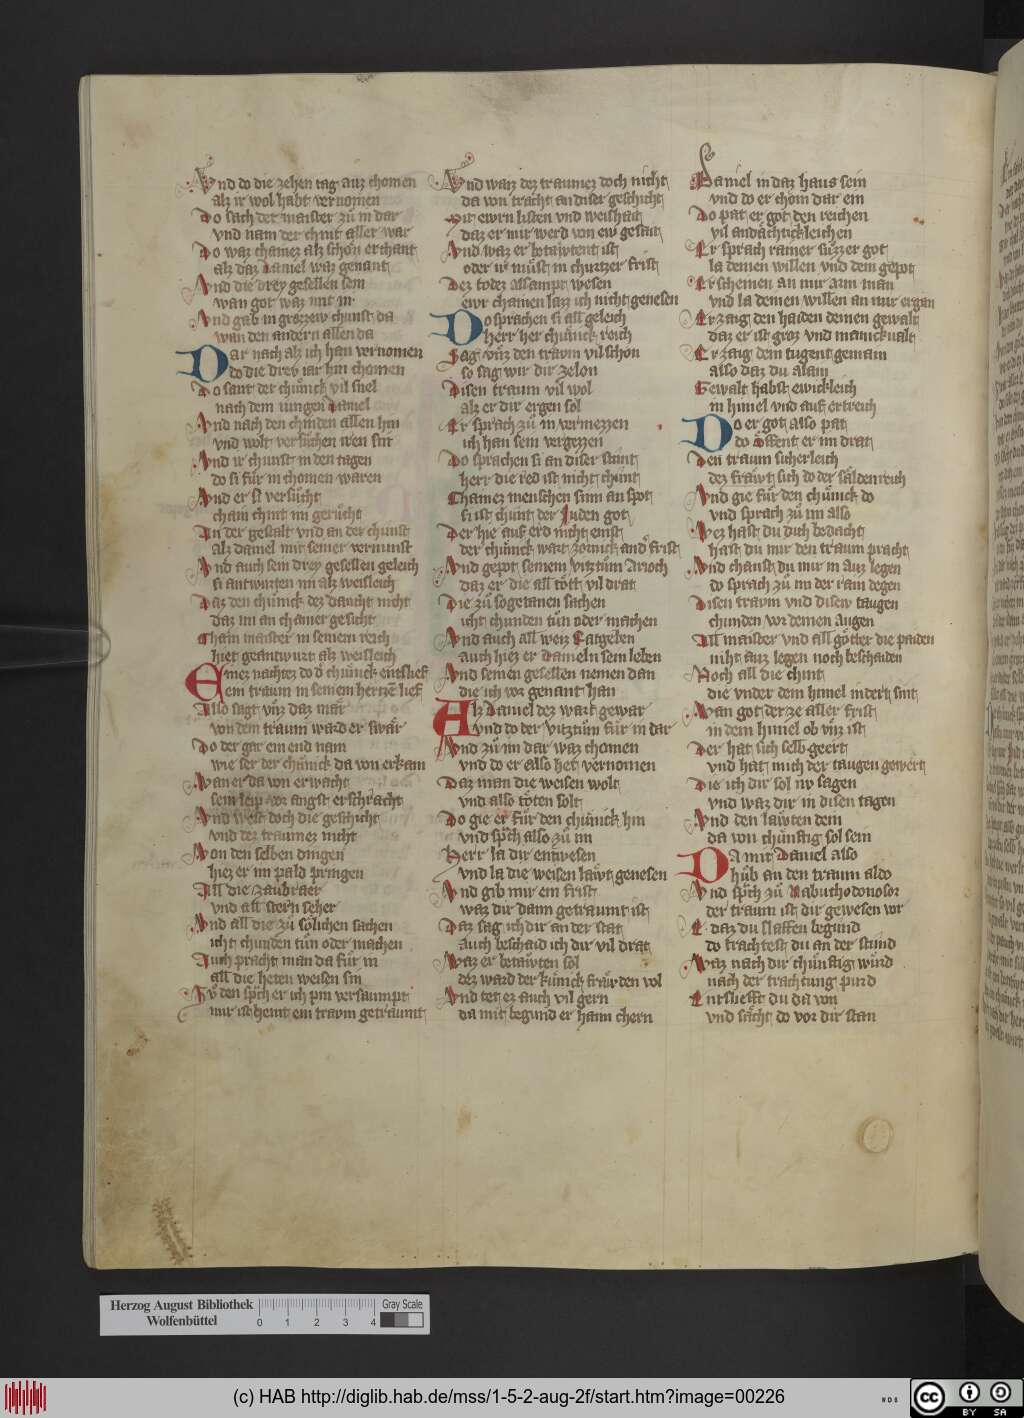 Vnd do die zehen tag auz chomen
alz ir wol habt vernomen
Do sach der maister zů in dar
vnd nam der chint aller war
Do waz chainez alz schon erchant
alz daz Daniel waz genant
Vnd die drey gesellen sein
wan got waz mit in
Vnd gab in grozzew chunst da
wan den andern allen da
Dar nach alz ich han vernomen
do die drew iar hin chomen
Do sant der chůnick vil snel
nach dem iungen Daniel
Vnd nach den chinden allen hin
vnd wolt versůchen iren sin
Vnd ir chunst in den tagen
do si fůr in chomen waren
Vnd er si versůcht
chain chint im gerůcht
In der gestalt vnd an der chunst
alz daniel mit seiner vernunst
Vnd auch sein drey gesellen geleich
si antwurten im alz weisleich
Daz den chůnick dez daucht nicht
daz im an chainer gesicht
Chain maister in seinem reich
hiet geantwurt alz weisleich
Einez nachtez do d chůnick entslief
ein traum in seinem hertzē lief
Also sagt vnz daz mår
von dem traum ward er swår
Do der gar ein end nam
wie ser der chůnick da von erkam
Wan er da von erwacht
sein leip vor angst erschracht
Vnd west doch die geschicht
vnd dez traumez nicht
Von den selben dingen
hiez er im pald pringen
All die zaubraer
vnd all stern seher
Vnd all die zů sölichen sachen
icht chunden tůn oder machen
Auch pracht man da fůr in
all die heten weisen sin
Zv den spch er ich pin versaumpt
mir ist heint ein traum getraumt
Vnd waiz dez traumez doch nicht
da von tracht an diser geschicht
Mit ewrn listen vnd weishait
daz er mir werd von ew gesait
Vnd waz er betawtent ist
oder ir můst in churtzer frist
Dez todez allsampt wesen
ewr chainen lazz ich nicht genesen
Do sprachen si all geleich
herr her chůnick reich
Sag vnz den traum vil schon
so sag wir dir zelon
Disen traum vil wol
alz er dir ergen sol
Er sprach zů in vermezzen
ich han sein vergezzen
Do sprachen si an diser stunt
herr die red ist nicht chunt
Chainez menschen sinn an spot
si ist chunt der Juden got
Der hie auf erd nicht einst
der chůnick wart zornick an d frist
Vnd gepot seinem vitztům Arioch
daz er die all tött vil drat
Die zů sogetanen sachen
icht chunden tůn oder machen
Vnd auch all weiz Ratgeben
auch hiez er Danieln sein leben
Vnd seinen gesellen nemen dan
die ich vor genant han
Alz Daniel dez wart gewar
vnd do der vitztům fůr in dar
Vnd zů im dar waz chomen
vnd do er also het vernomen
Daz man die weisen wolt
vnd also töten solt
Do gie er fůr den chůnick hin
vnd spch also zů im
Herr la dir entwesen
vnd la die weisen lawt genesen
Vnd gib mir ein frist
waz dir dann getraumt ist
Daz sag ich dir an der stat
auch beschaid ich dir vil drat
Waz er betawten sol
dez ward der kůnick frawden vol
Vnd tet ez auch vil gern
da mit begund er haim chern
Daniel in daz haus sein
vnd do er chom dar ein
Do pat er got den reichen
vil andåchtichleichen
Er sprach rainer sůzzer got
la deinen willen vnd dein gepot
Erscheinen an mir arm man
vnd la deinen willen an mir ergan
Erzaig den haiden deinen gewalt
daz er ist groz vnd manickualt
Erzaig dein tugent gemain
also daz du alain
Gewalt habst ewickleich
in himel vnd auf ertreich
Do er got also pat
do öffent er im drat
Den traum sicherleich
dez frawt sich do der sældenreich
Vnd gie fůr den chůnick do
vnd sprach zů im also
Wez hast du dich bedacht
hast du mir den traum pracht
Vnd chanst du mir in auz legen
do sprach zů im der rain degen
Disen traum vnd disew taugen
chunden vor deinen augen
All maister vnd all götter die paiden
niht auz legen noch beschaiden
Noch all die chint
die vnder dem himel indert sint
Wan got der ze aller frist
in dem himel ob vnz ist
Der hat sich selb geert
vnd hat mich der taugen gewert
Die ich dir sol nv sagen
vnd waz dir in disen tagen
Vnd den lawten dein
da von chůnftig sol sein
Da mit Daniel also
hůb an den traum aldo
Vnd spch zů Nabuchodonosor
der traum ist dir gewesen vor
E daz du slaffen begund
do trachtest du an der stund
Waz nach dir chůnftig wurd
nach der trachtung purd
Entslieft du da von
vnd sächt do vor dir stan
Herzog August Bibliothek
Wolfenbüttel
0 1 2 3 4
Gray Scale
(c) HAB http://diglib.hab.de/mss/1-5-2-aug-2f/start.htm?image=00226
WDB
cc BY SA